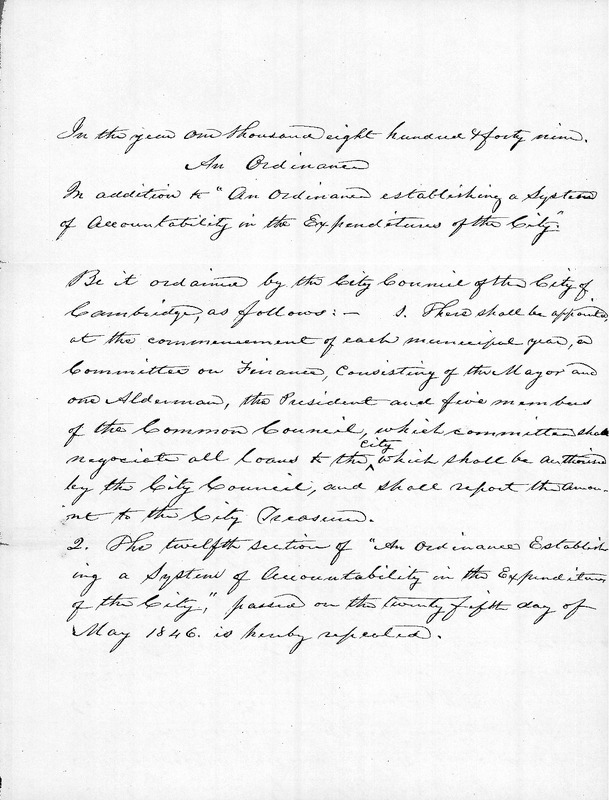 In the year one thousand eight hundred & forty nine.
An Ordinance
In addition to "An Ordinance establishing a System
of Accountability in the Expenditures of the City."
Be it ordained by the City Council of the City of
Cambridge, as follows:— 1. There shall be appointed
at the commencement of each municipal year, a
Committee on Finance, Consisting of the Mayor and
one Alderman, the President and five members
of the Common Council, which committee shall
negociate all loans to the city which shall be authorised
by the City Council, and shall report the amou-
nt to the City Treasurer.
2. The twelfth section of "An Ordinance Establish
ing a System of Accountability in the Expenditures
of the City," passed on the twenty fifth day of
May 1846. is hereby repealed.